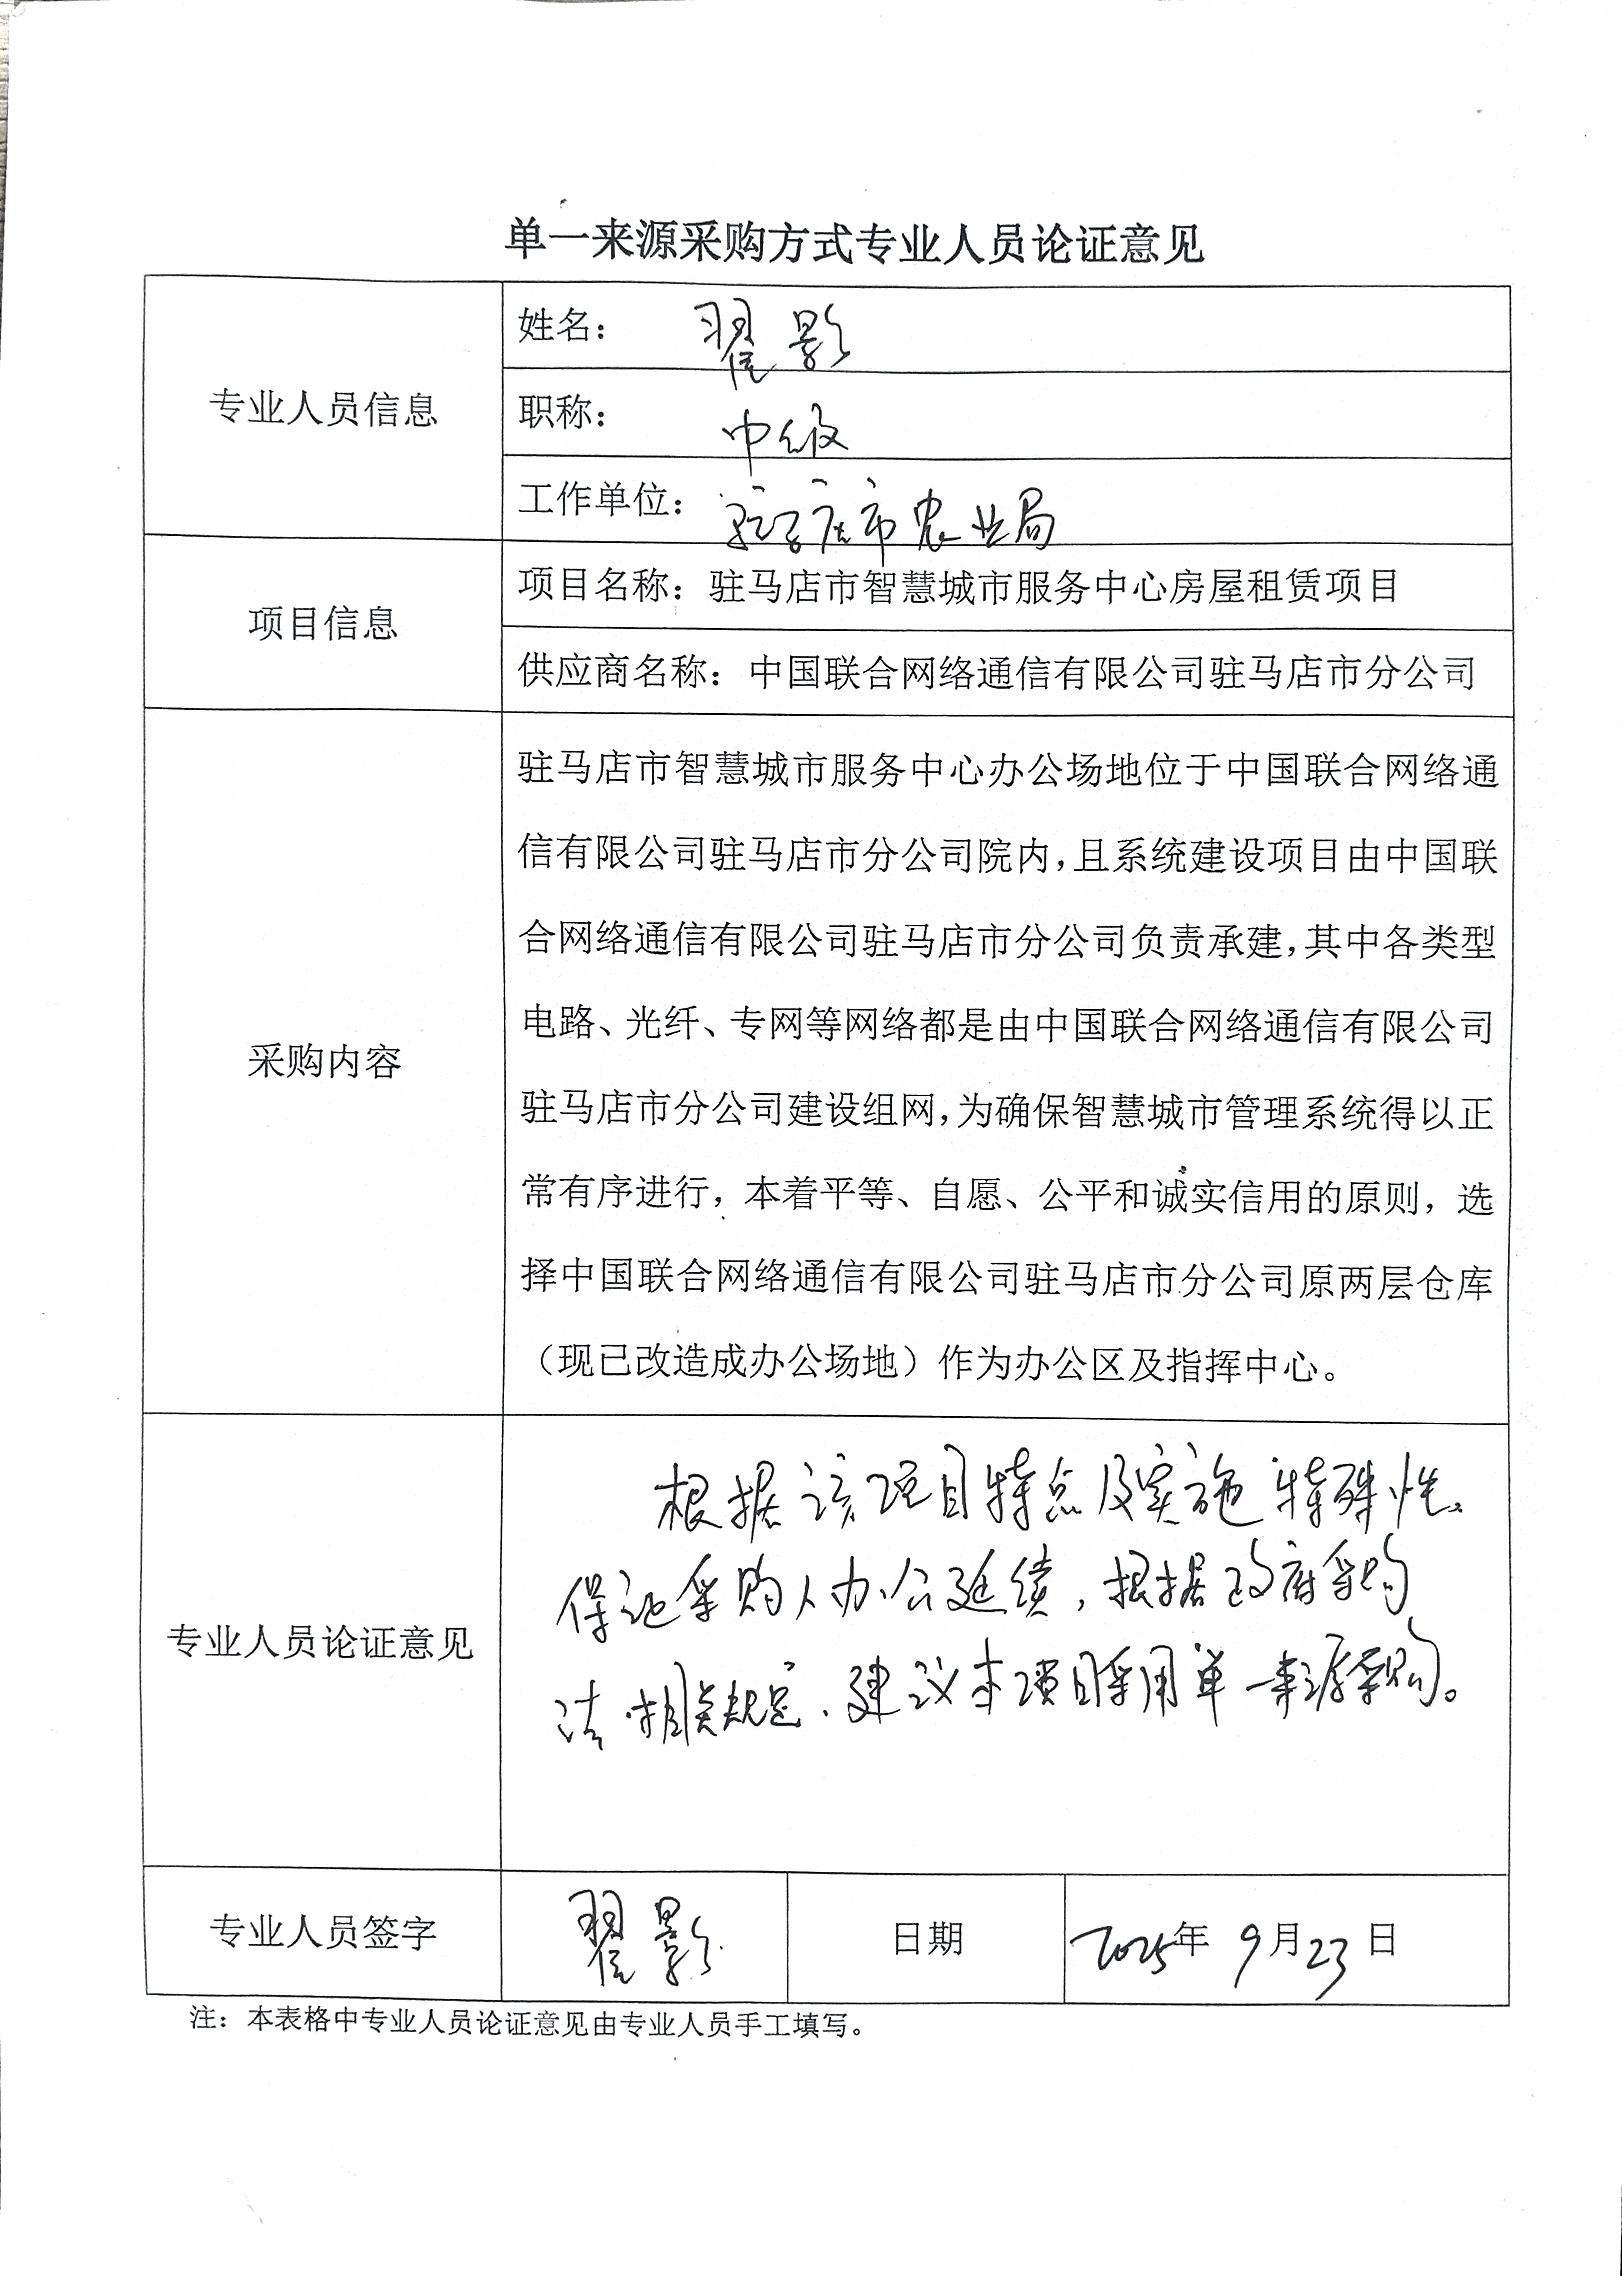 单一来源采购方式专业人员论证意见
专业人员信息
姓名： 翟影
职称： 中级
工作单位： 驻马店市农业局
项目信息
项目名称：驻马店市智慧城市服务中心房屋租赁项目
供应商名称：中国联合网络通信有限公司驻马店市分公司
采购内容
驻马店市智慧城市服务中心办公场地位于中国联合网络通
信有限公司驻马店市分公司院内，且系统建设项目由中国联
合网络通信有限公司驻马店市分公司负责承建，其中各类型
电路、光纤、专网等网络都是由中国联合网络通信有限公司
驻马店市分公司建设组网，为确保智慧城市管理系统得以正
常有序进行，本着平等、自愿、公平和诚实信用的原则，选
择中国联合网络通信有限公司驻马店市分公司原两层仓库
（现已改造成办公场地）作为办公区及指挥中心。
专业人员论证意见
根据该项目特点及实施特殊性、
保证采购人办公延续，根据政府采购
法相关规定、建议本项目采用单一来源采购。
专业人员签字 翟影 日期 2025年 9月23日
注：本表格中专业人员论证意见由专业人员手工填写。